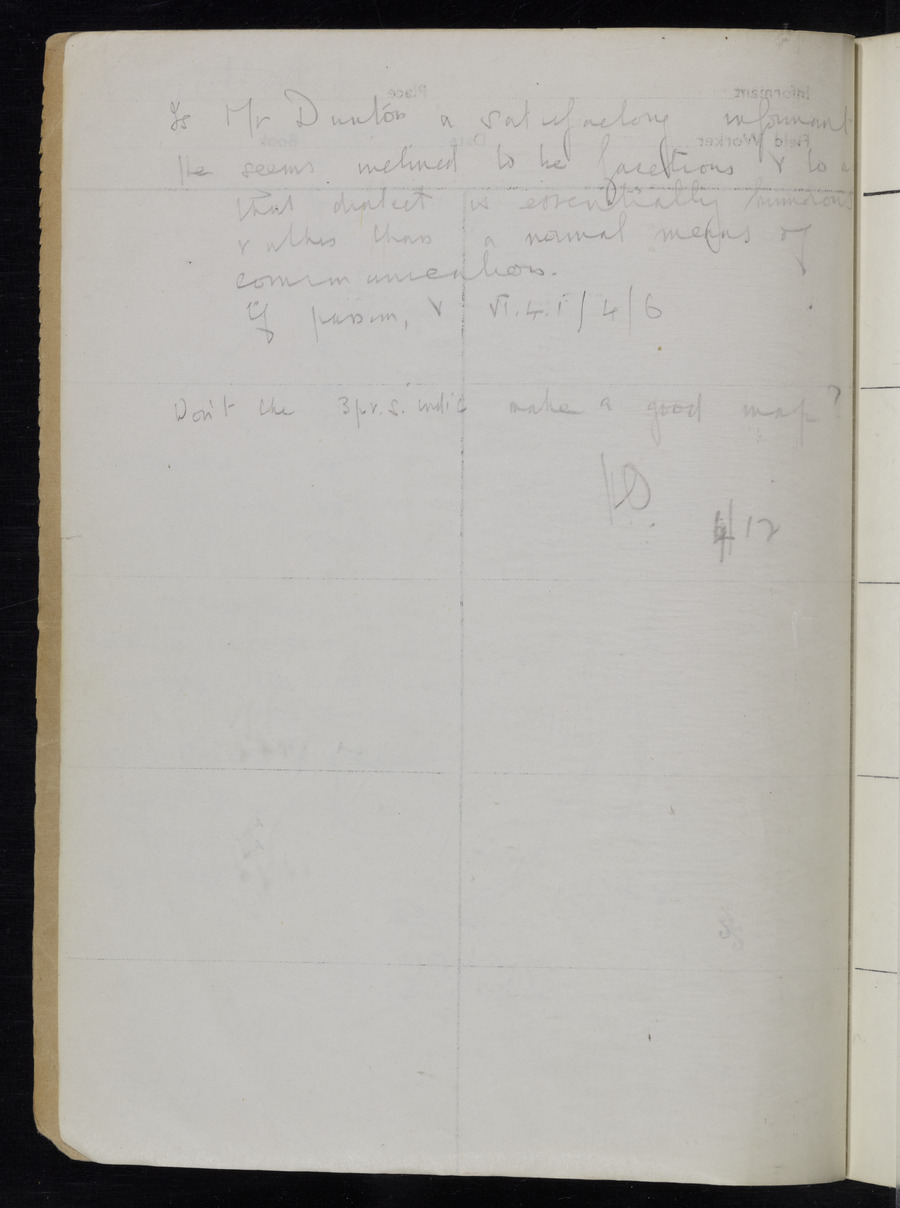 Is Mr Dunton a satisfactory informant
He seems inclined to be facetious & to
that dialect is essentially humorous
rather than a normal means of
communication.
Cf passim, & VI.4.1/4/6
Won't the 3 pr. s. indic make a good map?
HO
4/12